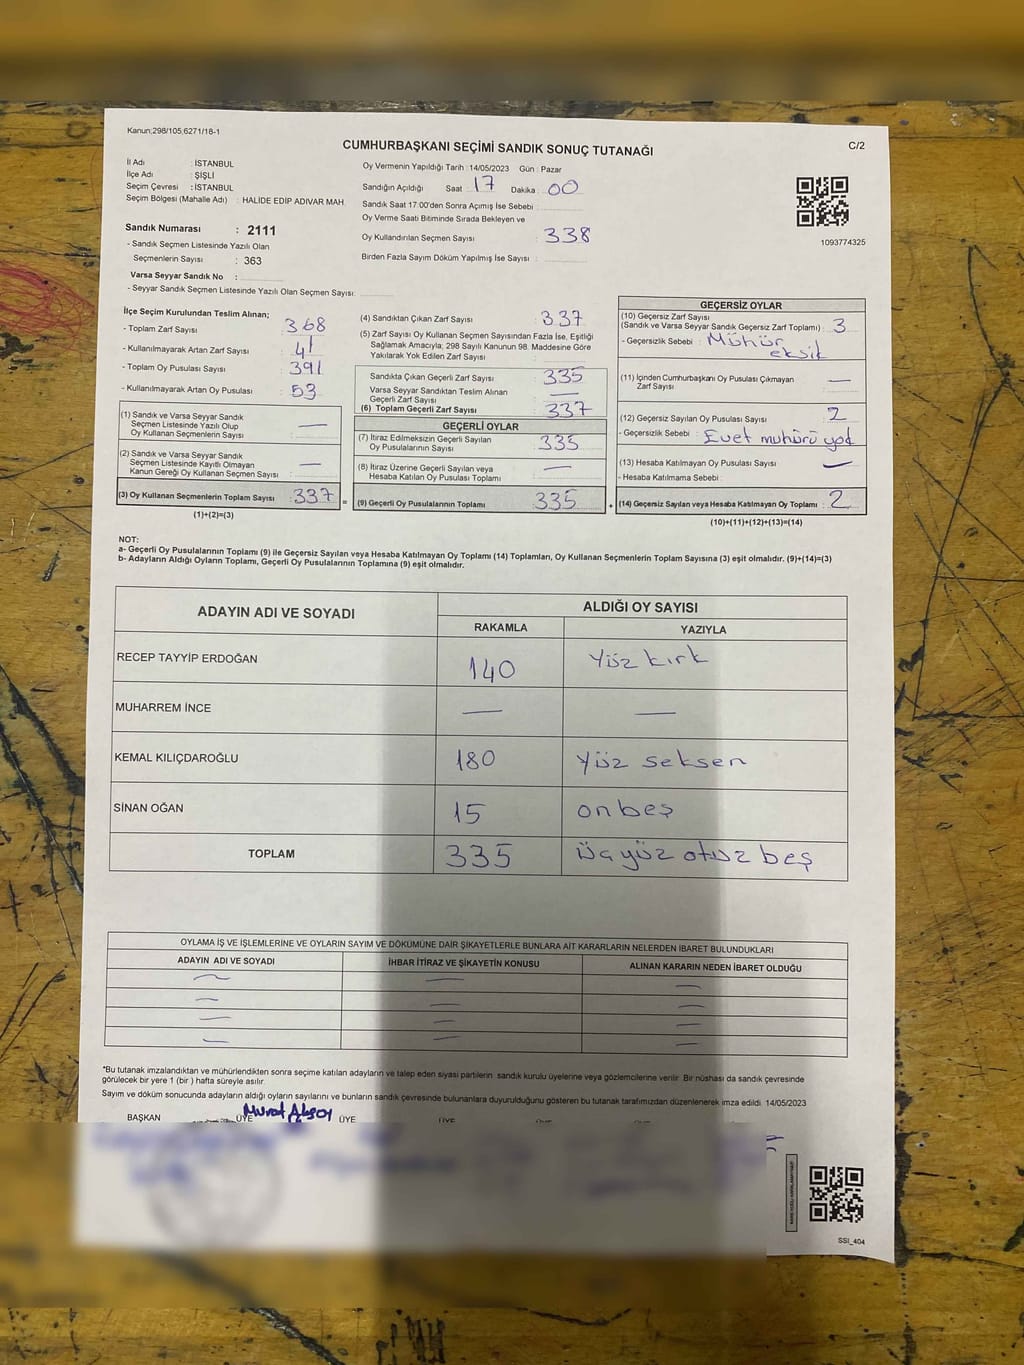 Kanun;298/105,6271/18-1
CUMHURBAŞKANI SEÇİMİ SANDIK SONUÇ TUTANAĞI
C/2
İl Adı : İSTANBUL
İlçe Adı : ŞİŞLİ
Seçim Çevresi : İSTANBUL
Seçim Bölgesi (Mahalle Adı) : HALİDE EDİP ADIVAR MAH.
Sandık Numarası : 2111
- Sandık Seçmen Listesinde Yazılı Olan
Seçmenlerin Sayısı : 363
Varsa Seyyar Sandık No :
- Seyyar Sandık Seçmen Listesinde Yazılı Olan Seçmen Sayısı:
Oy Vermenin Yapıldığı Tarih : 14/05/2023 Gün : Pazar
Sandığın Açıldığı Saat : 17 Dakika : 00
Sandık Saat 17:00'den Sonra Açımış İse Sebebi :
Oy Verme Saati Bitiminde Sırada Bekleyen ve
Oy Kullandırılan Seçmen Sayısı : 338
Birden Fazla Sayım Döküm Yapılmış İse Sayısı :
1093774325
İlçe Seçim Kurulundan Teslim Alınan;
- Toplam Zarf Sayısı : 368
- Kullanılmayarak Artan Zarf Sayısı : 41
- Toplam Oy Pusulası Sayısı : 391
- Kullanılmayarak Artan Oy Pusulası : 53
(1) Sandık ve Varsa Seyyar Sandık
Seçmen Listesinde Yazılı Olup
Oy Kullanan Seçmenlerin Sayısı : —
(2) Sandık ve Varsa Seyyar Sandık
Seçmen Listesinde Kayıtlı Olmayan
Kanun Gereği Oy Kullanan Seçmen Sayısı : —
(3) Oy Kullanan Seçmenlerin Toplam Sayısı : 337 =
(1)+(2)=(3)
(4) Sandıktan Çıkan Zarf Sayısı : 337
(5) Zarf Sayısı Oy Kullanan Seçmen Sayısından Fazla İse, Eşitliği
Sağlamak Amacıyla; 298 Sayılı Kanunun 98. Maddesine Göre
Yakılarak Yok Edilen Zarf Sayısı :
Sandıkta Çıkan Geçerli Zarf Sayısı : 335
Varsa Seyyar Sandıktan Teslim Alınan
Geçerli Zarf Sayısı : —
(6) Toplam Geçerli Zarf Sayısı : 337
GEÇERLİ OYLAR
(7) İtiraz Edilmeksizin Geçerli Sayılan
Oy Pusulalarının Sayısı : 335
(8) İtiraz Üzerine Geçerli Sayılan veya
Hesaba Katılan Oy Pusulası Toplamı : —
(9) Geçerli Oy Pusulalarının Toplamı : 335 +
GEÇERSİZ OYLAR
(10) Geçersiz Zarf Sayısı
(Sandık ve Varsa Seyyar Sandık Geçersiz Zarf Toplamı) : 3
- Geçersizlik Sebebi : Mühür
eksik
(11) İçinden Cumhurbaşkanı Oy Pusulası Çıkmayan
Zarf Sayısı : —
(12) Geçersiz Sayılan Oy Pusulası Sayısı : 2
- Geçersizlik Sebebi : Evet mühürü yok
(13) Hesaba Katılmayan Oy Pusulası Sayısı : —
- Hesaba Katılmama Sebebi :
(14) Geçersiz Sayılan veya Hesaba Katılmayan Oy Toplamı : 2
(10)+(11)+(12)+(13)=(14)
NOT:
a- Geçerli Oy Pusulalarının Toplamı (9) ile Geçersiz Sayılan veya Hesaba Katılmayan Oy Toplamı (14) Toplamları, Oy Kullanan Seçmenlerin Toplam Sayısına (3) eşit olmalıdır. (9)+(14)=(3)
b- Adayların Aldığı Oyların Toplamı, Geçerli Oy Pusulalarının Toplamına (9) eşit olmalıdır.
ADAYIN ADI VE SOYADI
ALDIĞI OY SAYISI
RAKAMLA YAZIYLA
RECEP TAYYİP ERDOĞAN 140 Yüz kırk
MUHARREM İNCE — —
KEMAL KILIÇDAROĞLU 180 Yüz seksen
SİNAN OĞAN 15 on beş
TOPLAM 335 Üç yüz otuz beş
OYLAMA İŞ VE İŞLEMLERİNE VE OYLARIN SAYIM VE DÖKÜMÜNE DAİR ŞİKAYETLERLE BUNLARA AİT KARARLARIN NELERDEN İBARET BULUNDUKLARI
ADAYIN ADI VE SOYADI İHBAR İTİRAZ VE ŞİKAYETİN KONUSU ALINAN KARARIN NEDEN İBARET OLDUĞU
— — —
— — —
— — —
— — —
"Bu tutanak imzalandıktan ve mühürlendikten sonra seçime katılan adayların ve talep eden siyasi partilerin sandık kurulu üyelerine veya gözlemcilerine verilir. Bir nüshası da sandık çevresinde
görülecek bir yere 1 (bir ) hafta süreyle asılır.
Sayım ve döküm sonucunda adayların aldığı oyların sayılarını ve bunların sandık çevresinde bulunanlara duyurulduğunu gösteren bu tutanak tarafımızdan düzenlenerek imza edildi. 14/05/2023
BAŞKAN ÜYE Murat Aksoy ÜYE ÜYE
SSI_404